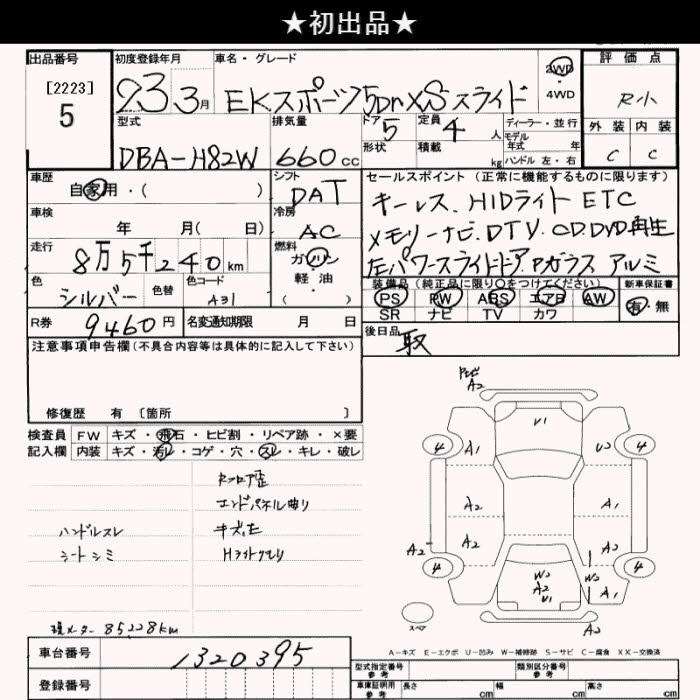 ★初出品★
出品番号
[2223]
5
初度登録年月
23年 3月
車名・グレード
EKスポーツ 5Dr XS スライド
2WD
4WD
評価点
R小
外装 内装
C C
型式
DBA-H82W
排気量
660 cc
ドア 5
形状
定員 4 人
積載 kg
ディーラー・並行
モデル年式 年
ハンドル 左・右
車歴
自家用・( )
シフト
DAT
車検
年 月( 日)
冷房
AC
走行
8万5千240 km
燃料
ガソリン
軽・油
( )
色
シルバー
色替
色コード
A31
R券
9460 円
名変通知期限 月 日
セールスポイント (正常に機能するものに限ります)
キーレス、HIDライト ETC
メモリーナビ、DTV、CD、DVD再生
左パワースライドドア、Pガラス アルミ
装備品(純正品に限り○をつけてください)
PS PW ABS エアB AW
SR ナビ TV カワ
新車保証書
有・無
後日品
取
注意事項申告欄(不具合内容等は具体的に記入して下さい)
修復歴 有 〔箇所 〕
検査員記入欄
FW キズ・飛石・ヒビ割・リペア跡・×要
内装 キズ・汚レ・コゲ・穴・スレ・キレ・破レ
Rフロア歪
エンドパネル曲り
ハンドルスレ
キズ、E
シートシミ
Hライトクモリ
現メーター 85228km
車台番号
1320395
登録番号
A2
U1
4 A1 U2 4
A2 A1
A2 A2 A2
4 W2 W2 4
A2 A1
U1
スペア
A2
A-キズ E-エクボ U-凹み W-補修跡 S-サビ C-腐食 XX-交換済
型式指定番号
類別区分番号
参考
車庫証明用
参考
長さ cm 幅 cm 高さ cm